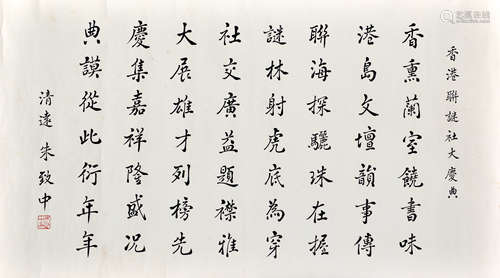 香港聯謎社大慶典
香熏蘭室饒書味
港島文壇韻事傳
聯海探驪珠在握
謎林射虎底為穿
社交廣益題襟雅
大展雄才列榜先
慶集嘉祥隆盛况
典謨從此衍年年
清遠 朱致中